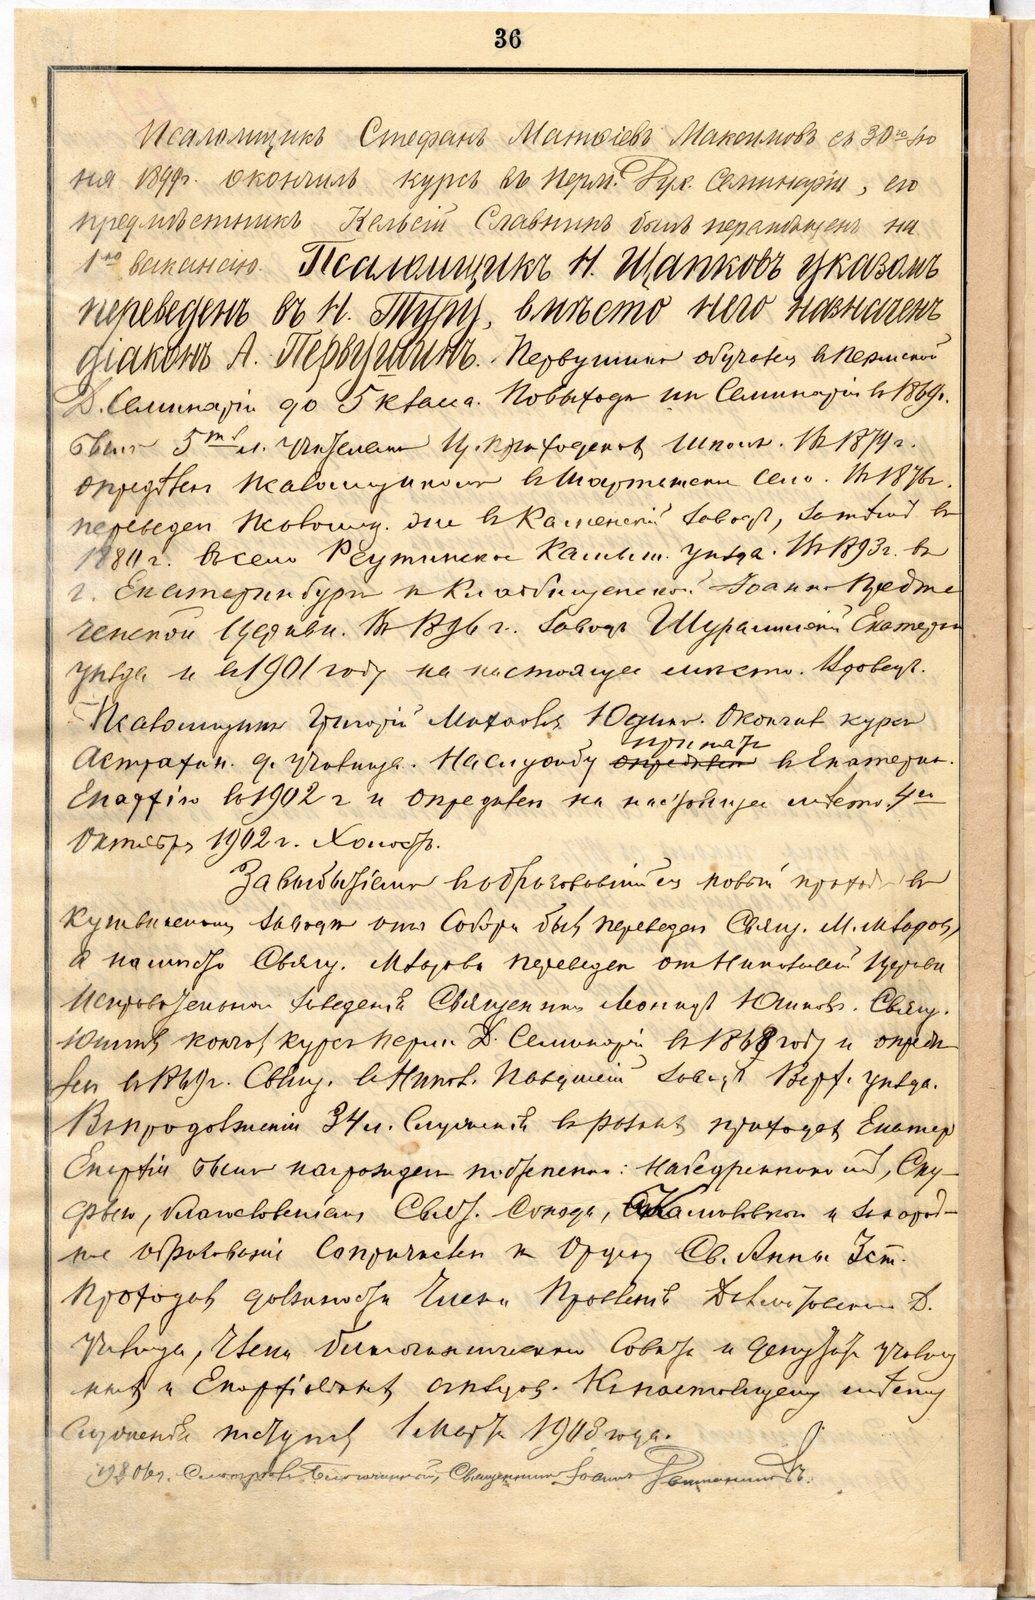 36
Псаломщикъ Стефанъ Матѳіевъ Максимовъ съ 30го Iю
ня 1899г. окончилъ курсъ въ Перм. Дух. Семинаріи, его
предмѣстникъ Кельсій Славнинъ былъ перемѣщенъ на
1ю вакансію. Псаломщикъ Н. Щапковъ указомъ
переведенъ въ Н. Туру, вмѣсто него назначенъ
діаконъ А. Первушинъ. Первушинъ обучался въ Пермской
Д. Семинаріи до 5 класса. По выходѣ изъ Семинаріи въ 1869г.
былъ 5ть л. учителемъ Ц. приходской школы. Въ 1874г.
опредѣленъ псаломщикомъ въ село. Въ 1876г.
переведенъ псаломщ. въ Каменскій заводъ, затѣмъ въ
188 г. въ село Реутинское Камышл. уѣзда. Въ 1893г. въ
г. Екатеринбургъ къ Кладбищенской Іоанно-Предте
ченской церкви. Въ 1896 г. заводъ Шуралинскій Екатерин
уѣзда и въ 1901 году на настоящее мѣсто. Вдовецъ.
Псаломщикъ Григорій Юдинъ. Окончилъ курсъ
Астрахан. д. училища. На службу принятъ
опредѣленъ въ Екатерин.
Епархію въ 1902 г и опредѣленъ на настоящее мѣсто 4го
Октября 1902 г. Холостъ.
За выбытіемъ въ образовавшійся новый приходъ въ
Кушвинскомъ заводѣ отъ Собора былъ переведенъ Свящ. М.
а на мѣсто Свящ. переведенъ отъ Николаевской церкви
Исправительнаго заведенія Священникъ Леонидъ Свящ.
кончилъ курсъ Перм. Д. Семинаріи въ 1868 году и опредѣ
ленъ въ 1869г. Свящ. въ Никол. Павдинскій заводъ Верх. уѣзда.
Въ продолженіи 34 л. служенія въ разныхъ приходахъ Екатер
Епархіи былъ награжденъ постепенно: набедренникомъ, Ску
фьею, благословеніемъ Свят. Синода, Камилавкою и за народ-
ное образованіе сопричисленъ къ Ордену Св. Анны 3 ст.
Проходилъ должности Члена Правленія Д.
училища, члена благочинническаго совѣта и депутата училищ
ныхъ и Епархіальныхъ съѣздовъ. Къ настоящему мѣсту
служенія поступилъ 1 Марта 1903 года.
Благочинный, Священникъ Іоаннъ